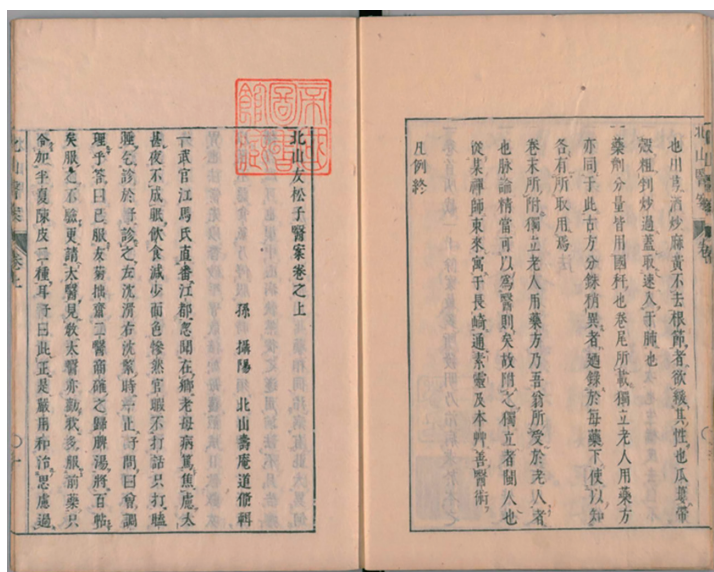 也川芎酒炒麻黃不去根節者欲緩其性也瓜蔞帶
殼粗剉炒過蓋取速入于肺也
藥劑分量皆用國秤也卷尾所載獨立老人用藥方
亦同于此古方分銖稍異者廼錄於每藥下使以知
各有所取用焉
卷末所附獨立老人用藥方乃吾翁所受於老人者
也脉論精當可以爲醫則矣故附之獨立者閩人也
從某禪師東來寓于長崎通素靈及本艸善醫術
凡例終
帝國圖書館藏
北山友松子醫案卷之上
孫 攝陽 北山壽庵道僊輯
一武官江馬氏直番江都忽聞在鄉老母病篤焦慮太
甚夜不成眠飲食減少面色慘然官暇不打話只打瞌
睡乞診於予診之左沈滑右沈緊時一止予問曰曾調
理乎答曰已服友菊拙齋二醫商確之歸脾湯將百帖
矣服之不驗更請太醫見敎太醫亦勸我多服前藥只
令加半夏陳皮二種耳予曰此正是嚴用和治思慮過
北山醫案 卷上